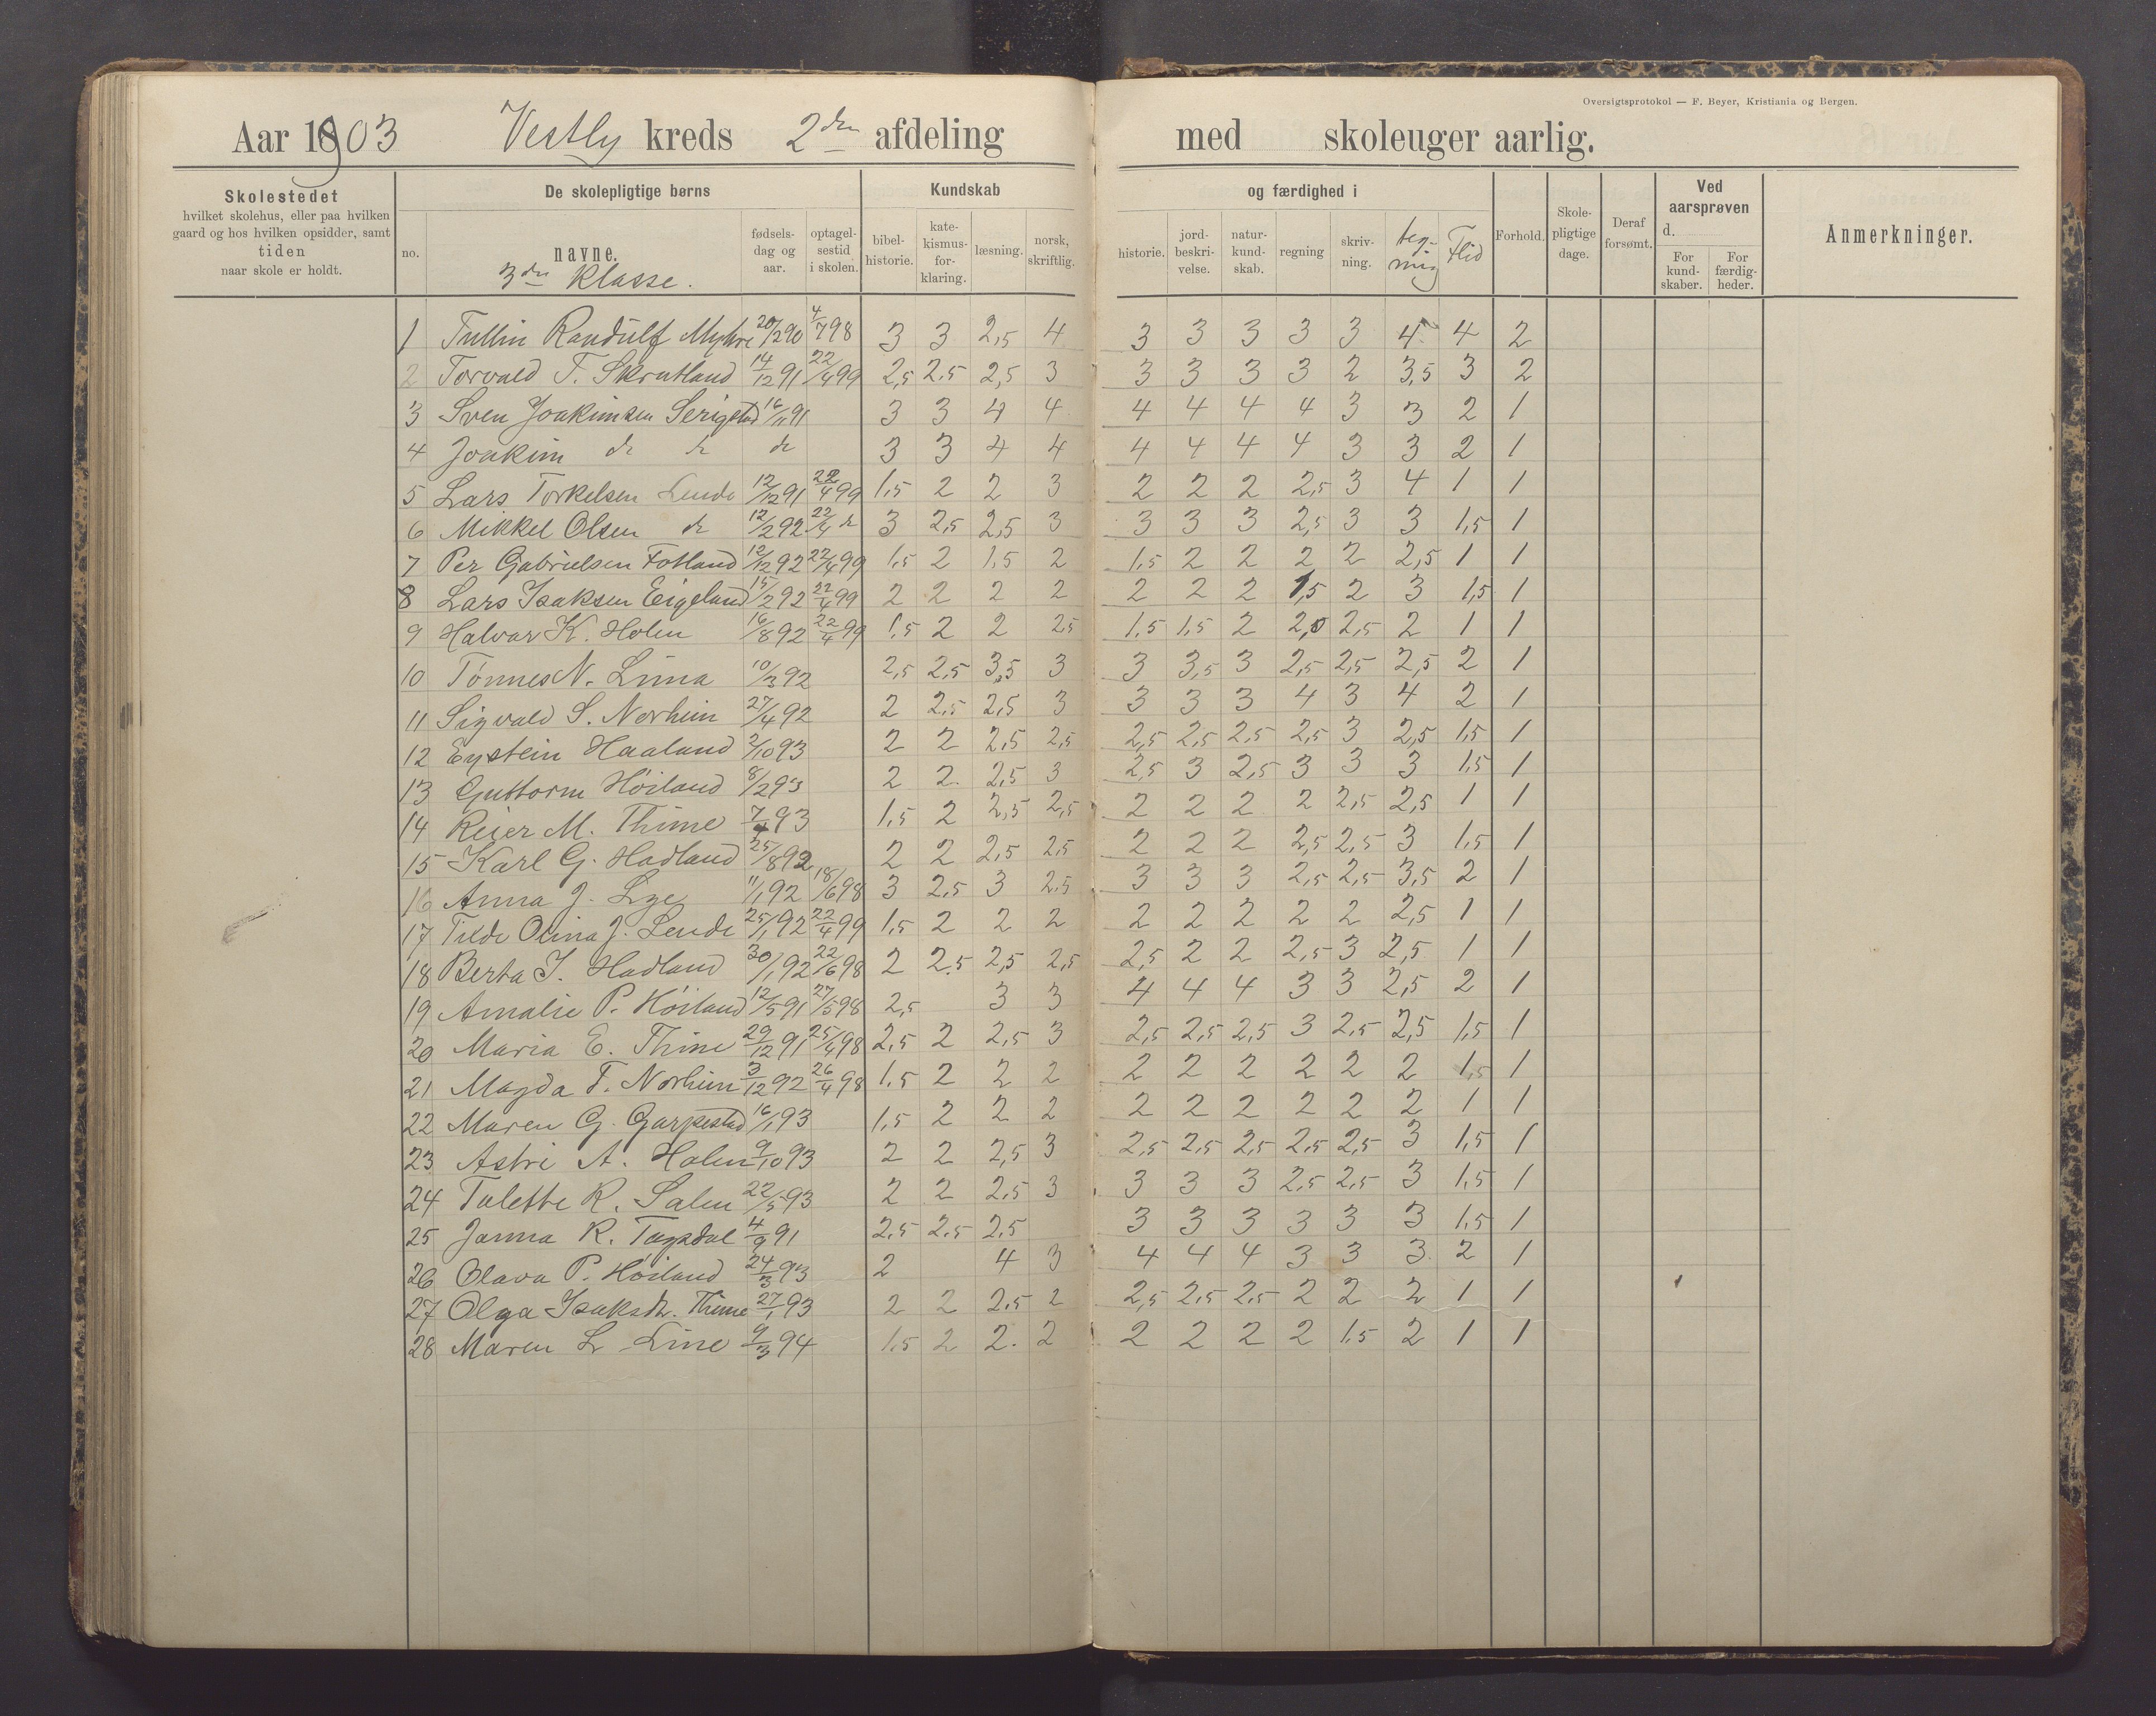 Oversigtsprotokol — F. Beyer, Kristiania og Bergen.
Aar 1903 Vestly kreds 2den afdeling med skoleuger aarlig.
Skolestedet hvilket skolehus, eller paa hvilken gaard og hos hvilken opsidder, samt tiden naar skole er holdt.
De skolepligtige børns
no. navne. fødsels-dag og aar. optagel-sestid i skolen.
3die Klasse.
Kundskab og færdighed i
bibel-historie. kate-kismus-for-klaring. læsning. norsk, skriftlig. historie. jord-beskri-velse. natur-kund-skab. regning skriv-ning. teg-ning Flid
Forhold. Skole-pligtige dage. Deraf forsømt. Ved aarsprøven d. For kund-skaber. For færdig-heder. Anmerkninger.
1 Tullin Randulf Myhre 20/2 90 4/7 98 3 3 2,5 4 3 3 3 3 3 4 4 2
2 Torvald T. Skrutland 14/12 91 22/4 99 2,5 2,5 2,5 3 3 3 3 3 2 3,5 3 2
3 Sven Joakimsen Serigstad 16/11 91 3 3 4 4 4 4 4 4 3 3 2 1
4 Joakim do do do 3 3 4 4 4 4 4 4 3 3 2 1
5 Lars Torkelsen Lende 12/12 91 22/4 99 1,5 2 2 3 2 2 2 2,5 3 4 1 1
6 Mikkel Olsen do 12/2 92 22/4 do 3 2,5 2,5 3 3 3 3 2,5 3 3 1,5 1
7 Per Gabrielsen Fotland 12/12 92 22/4 99 1,5 2 1,5 2 1,5 2 2 2 2 2,5 1 1
8 Lars Isaksen Eigeland 15/2 92 22/4 99 2 2 2 2 2 2 2 1,5 2 3 1,5 1
9 Halvar K. Holen 16/8 92 22/4 99 1,5 2 2 2,5 1,5 1,5 2 2,0 2,5 2 1 1
10 Tønnes N. Lima 10/3 92 2,5 2,5 3,5 3 3 3,5 3 2,5 2,5 2,5 2 1
11 Sigvald S. Norheim 27/4 92 2 2,5 2,5 3 3 3 3 4 3 4 2 1
12 Eystein Haaland 2/10 93 2 2 2,5 2,5 2,5 2,5 2,5 2,5 3 2,5 1,5 1
13 Guttorm Høiland 8/2 93 2 2. 2,5 3 2,5 3 2,5 3 3 3 1,5 1
14 Reier M. Thime 7/4 93 1,5 2 2,5 2,5 2 2 2 2 2,5 2,5 1 1
15 Karl G. Hadland 25/8 92 2 2 2,5 2,5 2 2 2 2,5 2,5 3 1,5 1
16 Anna J. Lye 11/1 92 18/6 98 3 2,5 3 2,5 3 3 3 2,5 2,5 3,5 2 1
17 Tilde Olina J. Lende 25/1 92 22/4 99 1,5 2 2 2 2 2 2 2 2 2,5 1 1
18 Berta I. Hadland 30/1 92 22/6 98 2 2.5 2,5 2,5 2,5 2 2 2,5 3 2,5 1 1
19 Amalie P. Høiland 12/5 91 27/5 98 2,5 3 3 4 4 4 3 3 2,5 2 1
20 Maria E. Thime 29/12 91 25/4 98 2,5 2 2,5 3 2,5 2,5 2,5 3 2,5 2,5 1,5 1
21 Magda T. Norheim 3/12 92 26/4 98 1,5 2 2 2 2 2 2 2 2 2 1,5 1
22 Maren G. Garpestad 16/1 93 1,5 2 2 2 2 2 2 2 2 2 1 1
23 Astri A. Holen 9/10 93 2 2 2,5 3 2,5 2,5 2,5 2,5 2,5 3 1,5 1
24 Talette R. Salen 22/5 93 2 2 2,5 3 3 3 3 2,5 2,5 3 1,5 1
25 Janna R. Tagsdal 4/9 91 2,5 2,5 2,5 3 3 3 3 3 3 1,5 1
26 Olava P. Høiland 24/3 93 2 4 3 4 4 4 3 3 3. 2 1
27 Olga Isaksdtr. Thime 27/1 93 2 2 2,5 2 2,5 2,5 2,5 2 2 2 1 1
28 Maren L Line 9/3 94 1,5 2 2. 2 2 2 2 2 1,5 2 1 1